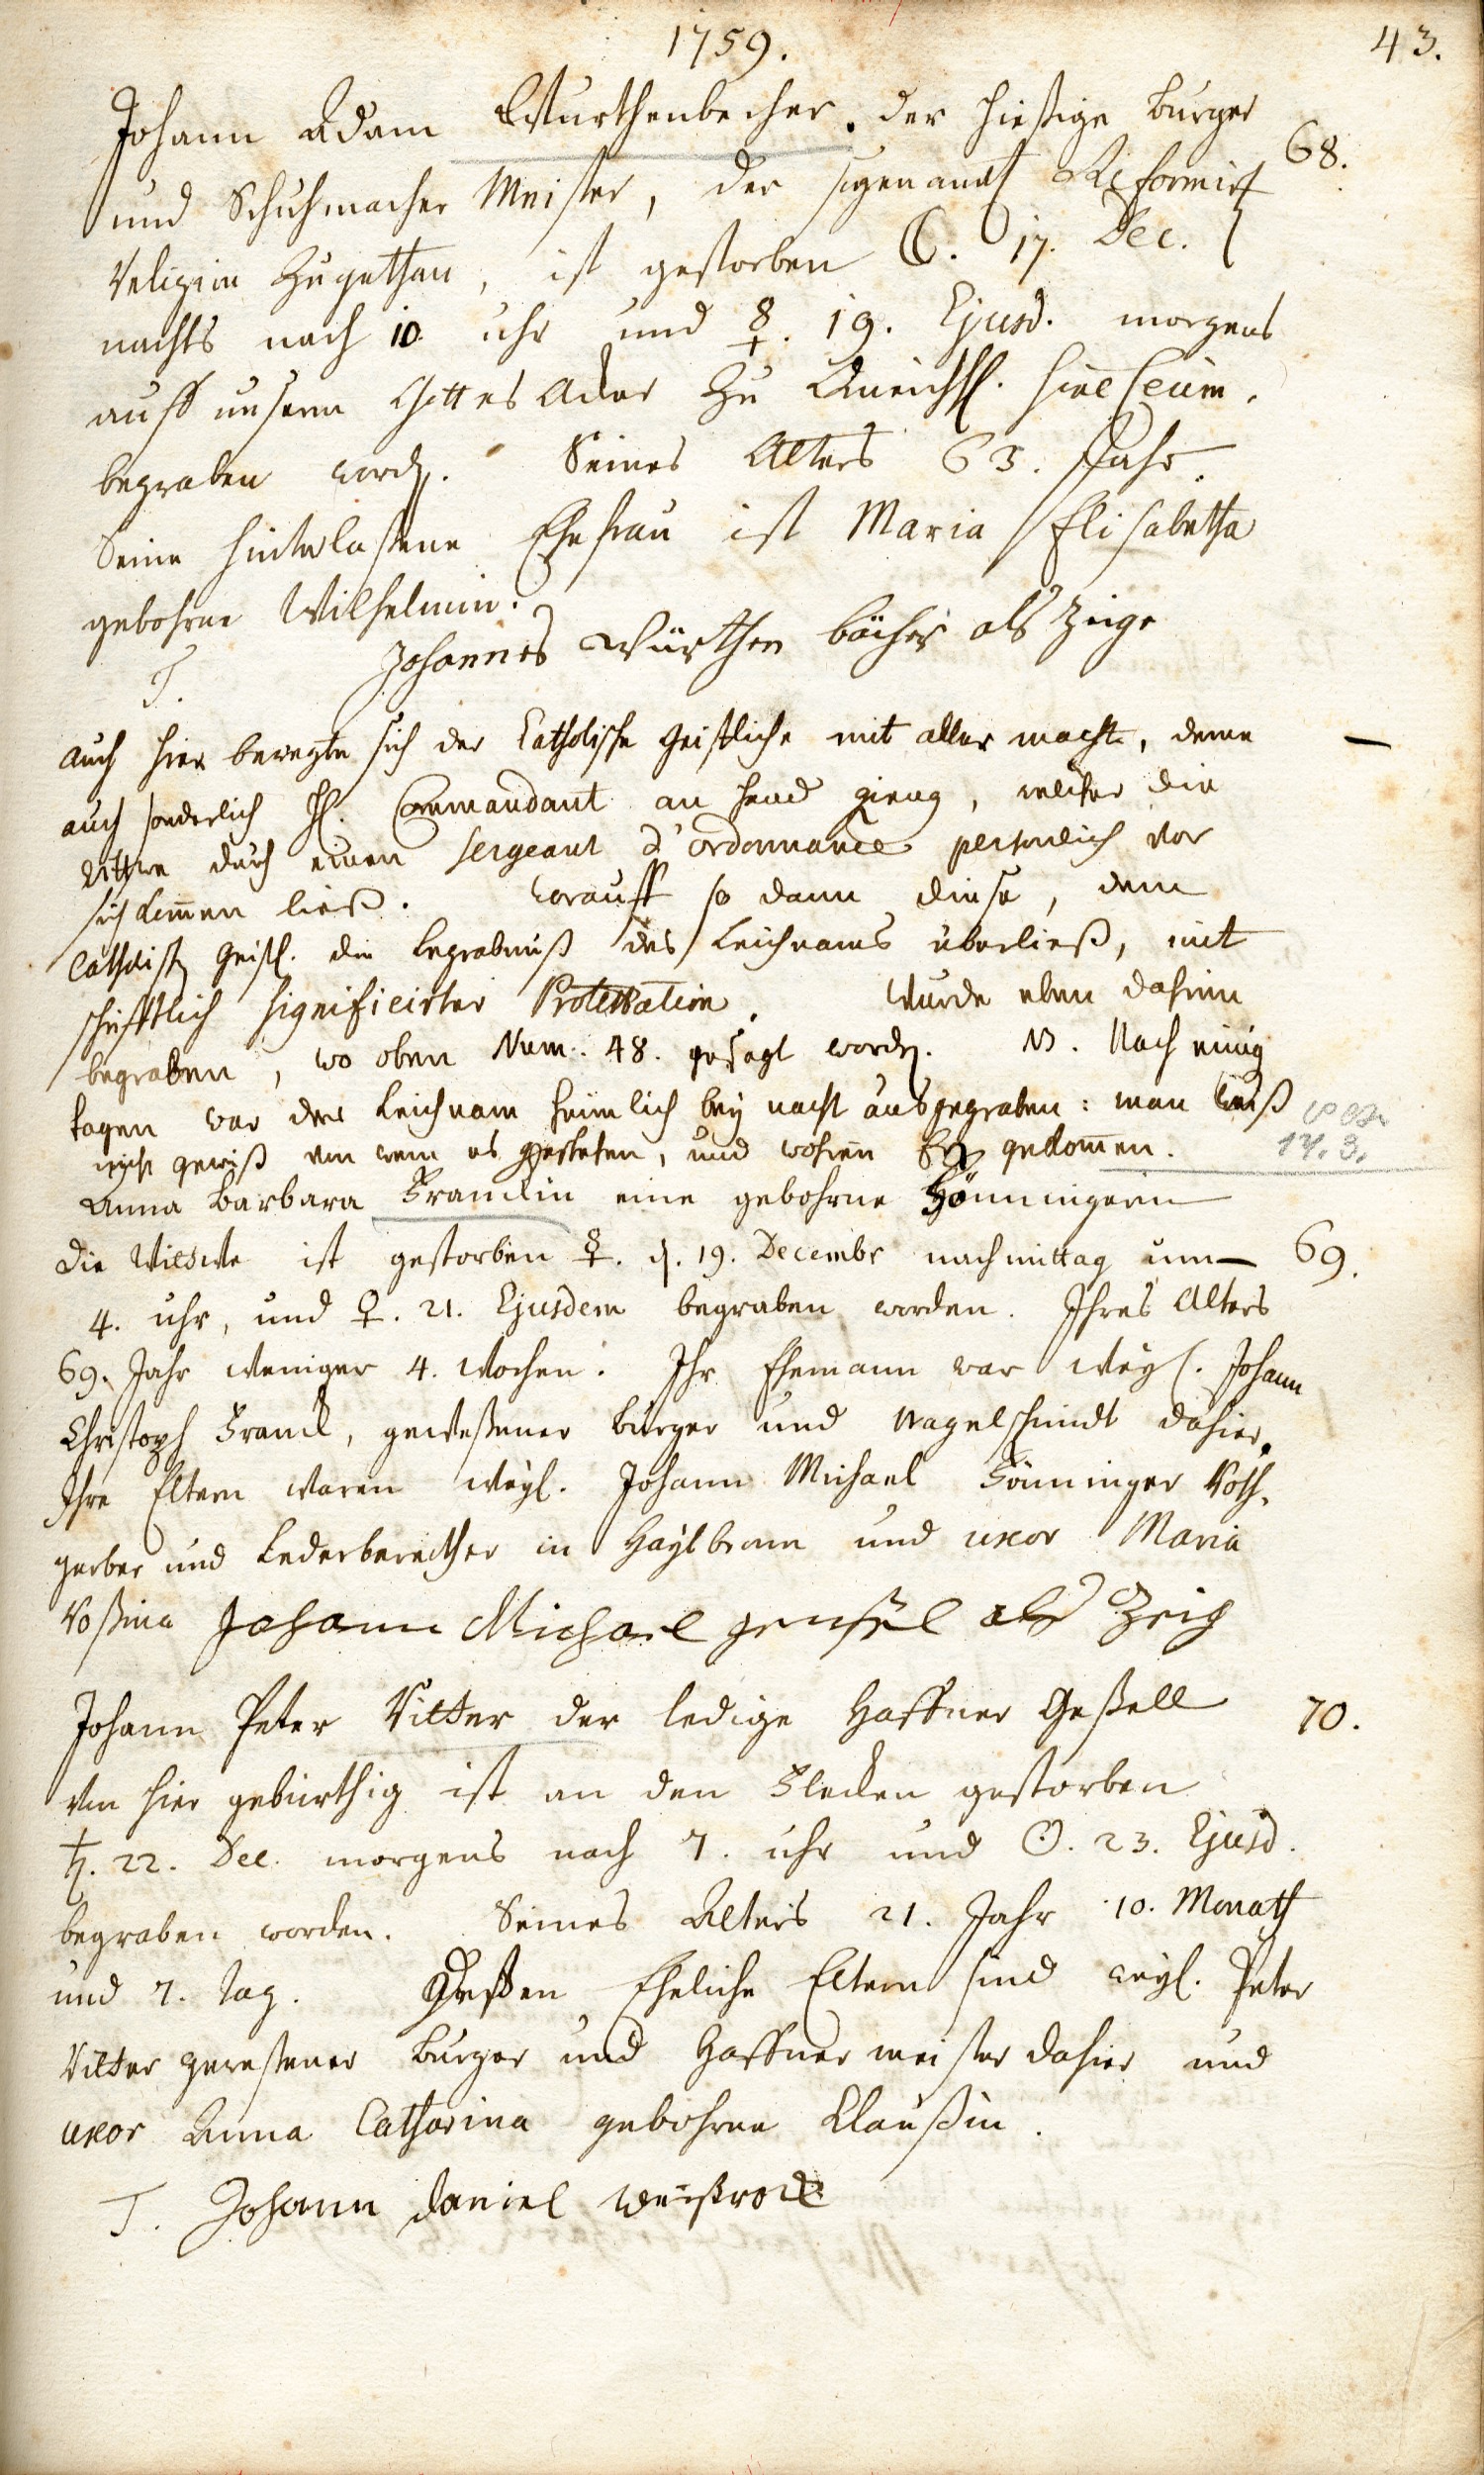 1759.
43.
Johann Adam Wurthenbecher. der hießige Burger
68.
und Schuhmacher Meister, der sogenandt Reformirt
Religion zugethan, ist gestorben ☾. 17. Dec.
nachts nach 10. uhr und ☿. 19. Ejusd. morgens
auff unserm Gottes Acker zu
begraben word. Seines Alters 63. Jahr.
Seine hinterlaßene Ehefrau ist Maria Elisabetha
gebohrne Wilhelmin.
T. Johannes Würthen bächer als Zeige
auch hier bewegte sich der Catholische Geistliche mit aller macht, deme
auch sonderlich H. Commandant an hand gieng, welcher die
Wittwe durch einen sergeant d'ordonnance persönlich vor
sich kom̅en ließ. worauff so dann diese, dem
Catholisch Geistl. die begräbnuß des Leichnams überließ, mit
schrifftlich significirter Protestation. Wurde eben dahin
begraben, wo oben Num. 48. gesagt word. NB. Nach einig
tagen war der Leichnam heimlich bey nacht ausgegraben: man weiß
nicht gewiß von wem es geschehen, und wohin Er gekom̅en.
17.3.
Anna Barbara Franckin eine gebohrne Hönningerin
die Wittwe ist gestorben ☿. d. 19. Decembr nachmittag um
69.
4. uhr, und ♀. 21. Ejusdem begraben worden. Ihres Alters
69. Jahr weniger 4. Wochen. Ihr Ehemann war weyl. Johann
Christoph Franck, geweßener Burger und Nagelschmidt dahier.
Ihre Eltern waren weyl. Johann Michael Hönninger Roth-
gerber und Lederbereither in Haylbronn und uxor Maria
Roßina Johann Michael als Zeig
Johann Peter Ritter der ledige Haffner Geßell
70.
von hier gebürthig ist an den Flecken gestorben
♄. 22. Dec. morgens nach 7. uhr und ☉. 23. Ejusd.
begraben worden. Seines Alters 21. Jahr 10. Monath
und 7. Tag. Deßen Eheliche Eltern sind weyl. Peter
Ritter geweßener Burger und Haffner meister dahier und
uxor Anna Catharina gebohrne Claußin.
T. Johann Daniel Weißrock